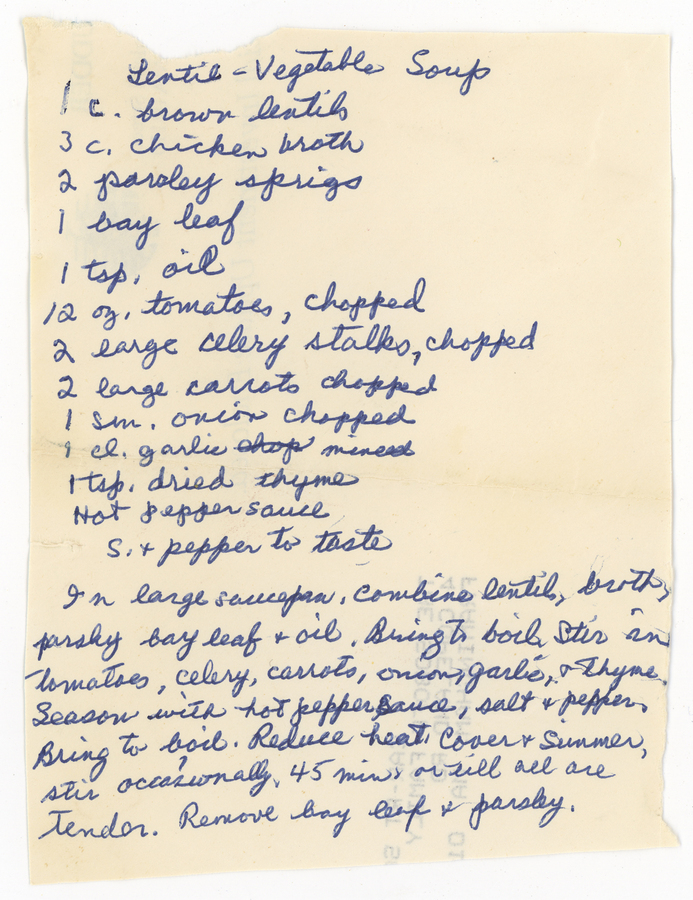 Lentil - Vegetable Soup
1 c. brown lentils
3 c. chicken broth
2 parsley sprigs
1 bay leaf
1 tsp. oil
12 oz. tomatoes, chopped
2 large celery stalks, chopped
2 large carrots chopped
1 sm. onion chopped
1 cl. garlic chop minced
1 tsp. dried thyme
Hot pepper sauce
S. + pepper to taste
In large saucepan, combine lentils, broth,
parsley bay leaf + oil. Bring to boil. Stir in
tomatoes, celery, carrots, onion, garlic, + thyme.
Season with hot pepper sauce, salt + pepper.
Bring to boil. Reduce heat. Cover + Simmer,
stir occasionally, 45 min. or till all are
tender. Remove bay leaf + parsley.